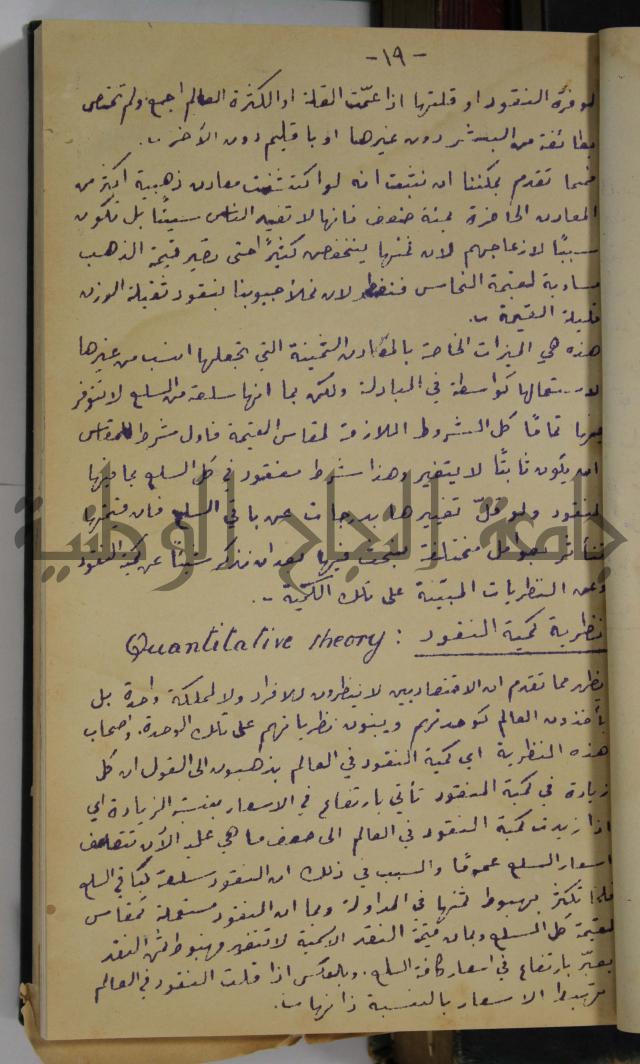 - ١٩ -
لوفرة النقود او قلتها اذا عمّت القلة او الكثرة العالم اجمع ولم تختص
بطائفة من البشر دون غيرها او باقليم دون الآخر .
فمما تقدم يمكننا ان نثبت انه لو اكتشفت معادن ذهبية اكثر من
المعادن الحاضرة بمئة ضعف فانها لا تفيد الناس شيئًا بل تكون
سببًا لازعاجهم لان ثمنها ينخفض كثيرًا حتى تصير قيمة الذهب
مساوية لقيمة النحاس فنضطر لان نملأ جيوبنا بنقود ثقيلة الوزن
قليلة القيمة .
هذه هي الميزات الخاصة بالمعادن الثمينة التي تجعلها انسب من غيرها
لاستعمالها كواسطة في المبادلة ولكن بما انها سلعة من السلع لا تتوفر
فيها تمامًا كل الشروط اللازمة لمقاس القيمة فاول شرط للمقاس
ان يكون ثابتًا لا يتغير وهذا شرط مفقود في كل السلع بما فيها
النقود ولو قلّ تغييرها بدرجات عن باقي السلع فان قيمتها
تتأثر بعوامل مختلفة سنبحث فيها بعد ان نذكر شيئًا عن كمية النقود
وعن النظريات المبنية على تلك الكمية .
نظرية كمية النقود : Quantitative theory
يظهر مما تقدم ان الاقتصاديين لا ينظرون للافراد ولا لمملكة واحدة بل
يأخذون العالم كوحدتهم ويبنون نظرياتهم على تلك الوحدة. واصحاب
هذه النظرية اي كمية النقود في العالم يذهبون الى القول ان كل
زيادة في كمية النقود تأتي بارتفاع في الاسعار بنسبة الزيادة اي
اذا زيدت كمية النقود في العالم الى ضعف ما هي عليه الآن تتضاعف
اسعار السلع عمومًا والسبب في ذلك ان النقود سلعة كباقي السلع
فلما تكثر يهبط ثمنها في المداولة وبما ان النقود مستعملة كمقاس
لقيمة كل السلع وبما ان قيمة النقد الاسمية لا تتغير فهبوط ثمن النقد
يعبّر بارتفاع في اسعار كافة السلع. وبالعكس اذا قلت النقود في العالم
تهبط الاسعار بالنسبة ذاتها .
جامعة النجاح الوطنية